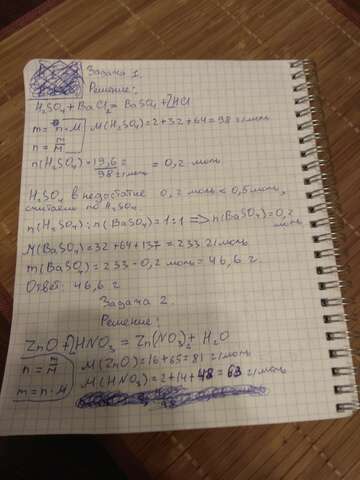 Задача 1.
Решение:
H₂SO₄ + BaCl₂ = BaSO₄ + 2HCl
m = n · M M(H₂SO₄) = 2 + 32 + 64 = 98 г/моль
n = m/M
n(H₂SO₄) = 19,6 г / 98 г/моль = 0,2 моль
H₂SO₄ в недостатке 0,2 моль < 0,5 моль,
считаем по H₂SO₄
n(H₂SO₄) : n(BaSO₄) = 1:1 => n(BaSO₄) = 0,2 моль
M(BaSO₄) = 32 + 64 + 137 = 233 г/моль
m(BaSO₄) = 233 · 0,2 моль = 46,6 г.
Ответ: 46,6 г
Задача 2.
Решение:
ZnO + 2HNO₃ = Zn(NO₃)₂ + H₂O
n = m/M M(ZnO) = 16 + 65 = 81 г/моль
m = n · M M(HNO₃) = 2 + 14 + 48 = 63 г/моль